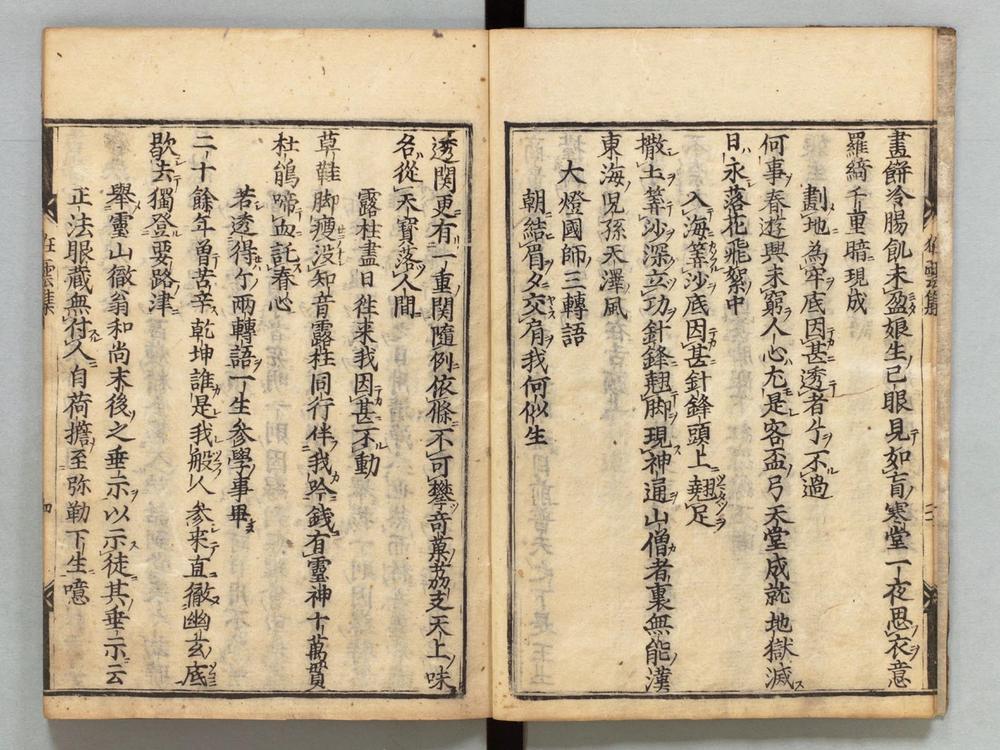 畫餅冷腸飢未盈娘生已眼見如盲寒堂一夜思衣意
羅綺千重暗現成
劃地為牢底因甚透者亇不過
何事春遊興未窮人心尢是客盃弓天堂成就地獄滅
日永落花飛絮中
入海筭沙底因甚針鋒頭上翹足
撒土筭沙深立功針鋒翹脚現神通山僧者裏無能漢
東海児孫天澤風
大燈國師三轉語
朝結眉夕交肩我何似生
透関更有一重関隨例依條不可攀奇菓茘支天上味
名從天寶落人間
露柱盡日徃来我因甚不動
草鞋脚瘦没知音露柱同行伴我吟錢有靈神十萬貫
杜鵑啼血託春心
若透得亇兩轉語一生參學事畢
二十餘年曽苦辛乾坤誰是我般人参来直徹幽玄底
歇去獨登要路津
舉靈山徹翁和尚末後之垂示以示徒其垂示云
正法眼蔵無付人自荷擔至弥勒下生噫
狂雲集
四